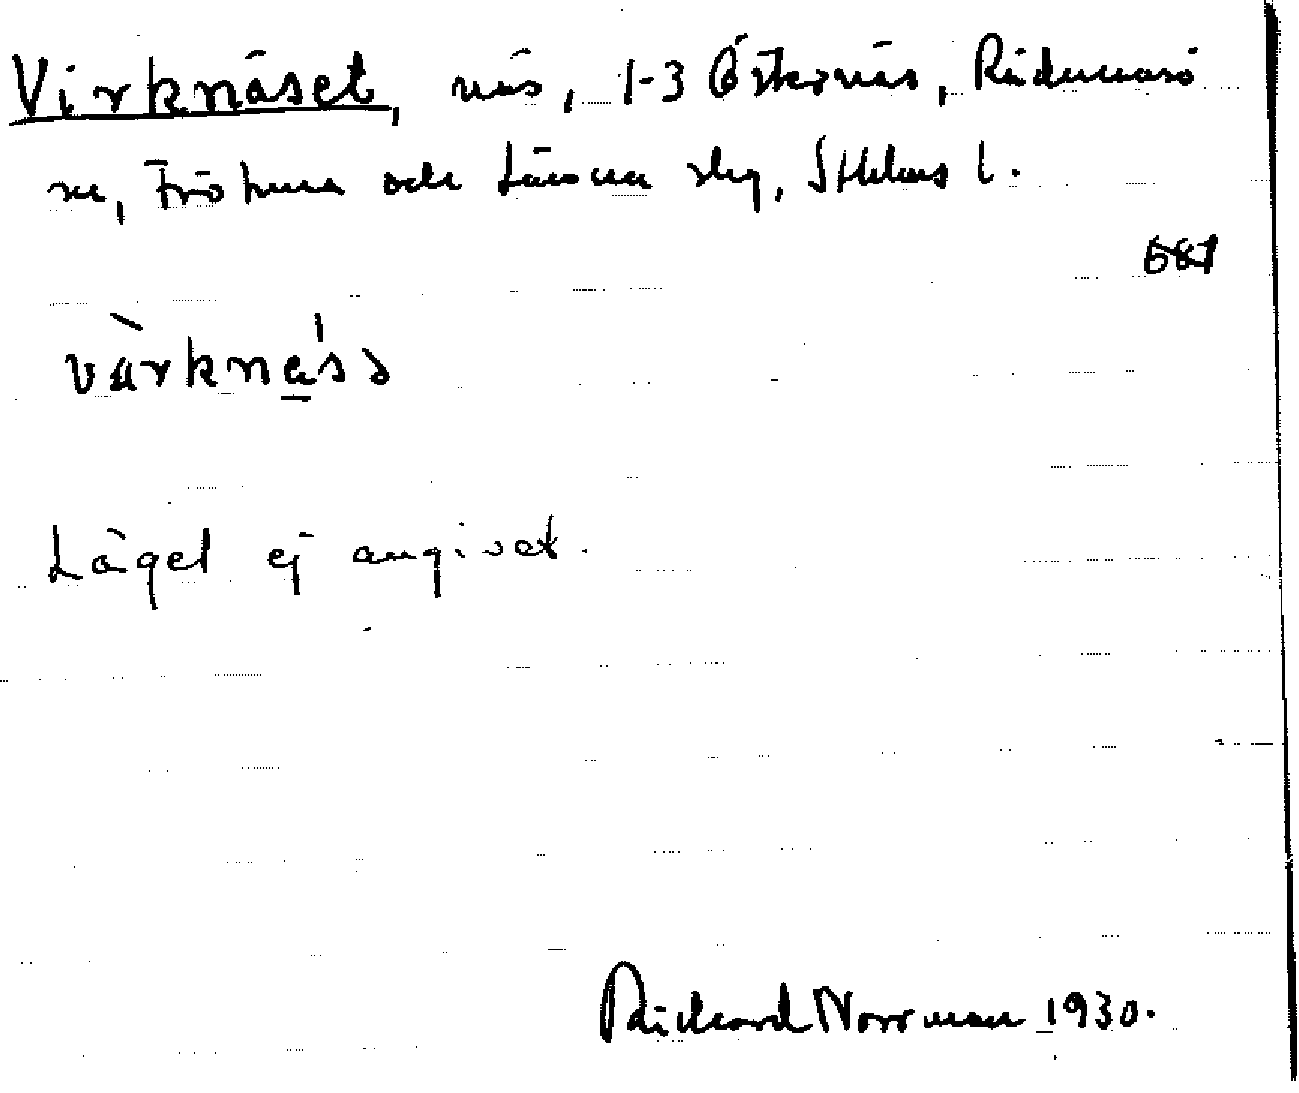 Virknäset, näs, 1-3 Östernäs, Rådmansö
sn, Fröhuna och Länna slg, Sthlms l.
681
värknä́ss
Läget ej angivet.
Rickard Norrman 1930.